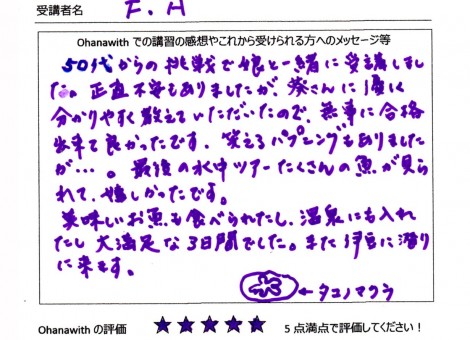 受講者名 F. H
Ohanawith での講習の感想やこれから受けられる方へのメッセージ等
50代からの挑戦で娘と一緒に受講しまし
た。正直不安もありましたが、葵さんに優しく
分かりやすく教えていただいたので、無事に合格
出来て良かったです。笑えるハプニングもありました
が…。最後の水中ツアーたくさんの魚が見ら
れて、嬉しかったです。
美味しいお魚も食べられたし、温泉にも入れ
たし大満足な3日間でした。また伊豆に潜り
に来ます。
←タコノマクラ
Ohanawith の評価 ★★★★★ 5 点満点で評価してください！